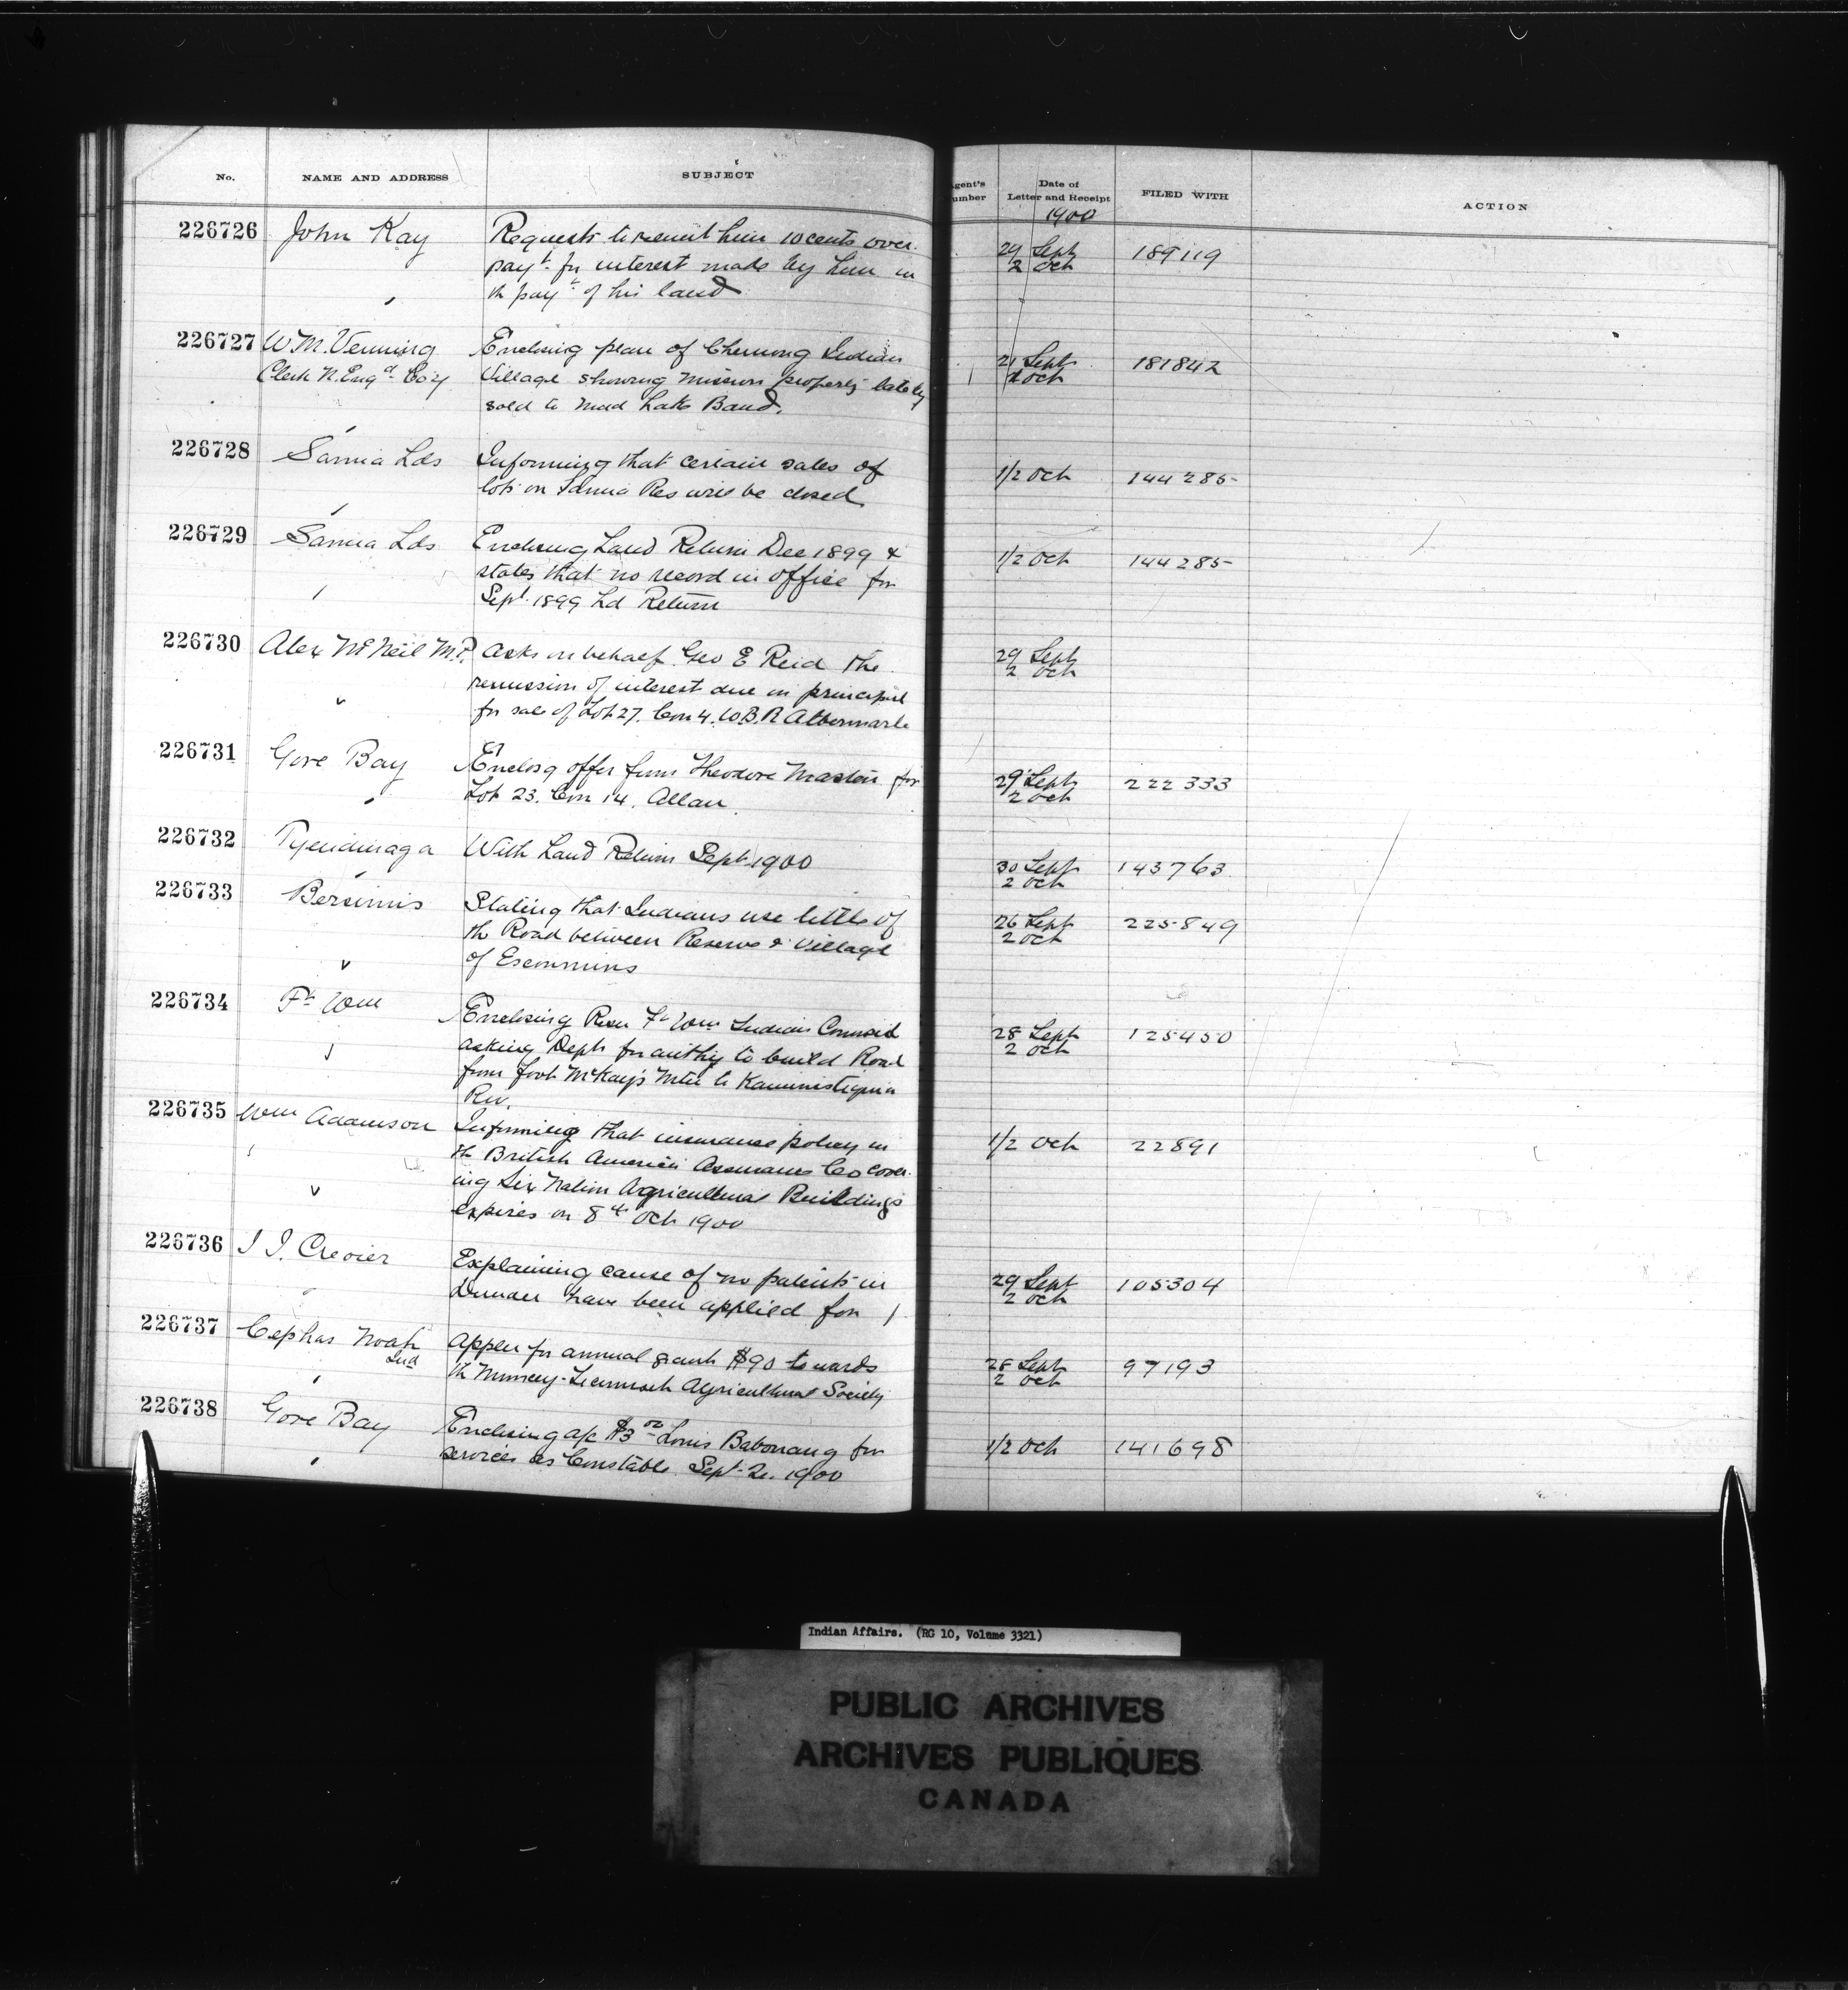 No. NAME AND ADDRESS SUBJECT gent's umber Date of Letter and Receipt FILED WITH ACTION
1900
226726 John Kay Requests to remit him 10 cents over 29 Sept 189119
payt for interest made by him in 2 Oct
th payt of his land
226727 W. M. Venning Enclosing plan of Chemong Indian 21 Sept 181842
Clerk N. Engd Co'y Village showing mission property lately 2 Oct
sold to Mud Lake Band.
226728 Sarnia Lds Informing that certain sales of 1/2 Oct 144285
lots on Sarnia Res will be closed
226729 Sarnia Lds Enclosing Land Return Dec 1899 & 1/2 Oct 144285
states that no record in office for
Sept. 1899 Ld Return
226730 Alex McNeil M.P. Asks on behalf Geo E Reid the 29 Sept
remission of interest due on principal 2 Oct
for sale of Lot 27. Con 4. W.B.R Albermarle
226731 Gore Bay Enclosg offer from Theodore Mastin for 29 Sept 222333
Lot 23. Con 14. Allan 2 Oct
226732 Tyendinaga With Land Return Sept 1900 30 Sept 143763
2 Oct
226733 Bersimis Stating that Indians use little of 26 Sept 225849
th Road between Reserve & Village 2 Oct
of Escoumins
226734 Ft Wm Enclosing Resn Ft Wm Indian Council 28 Sept 125450
asking Dept for authy to build Road 2 Oct
from foot McKay's Mtn to Kaministiquia
Riv.
226735 Wm Adamson Informing that insurance policy in 1/2 Oct 22891
th British America Assurance Co cover-
ing Six Nation Agricultural Buildings
expires on 8th Oct 1900
226736 J. I. Crevier Explaining cause of no patents in 29 Sept 105304
Dundee have been applied for 2 Oct
226737 Cephas Noah Appln for annual grant $90 towards 28 Sept 97193
Ind th Muncey-Tecumseh Agricultural Society 2 Oct
226738 Gore Bay Enclosing a/c $3 00 Louis Babonaung for 1/2 Oct 141698
services as Constable Sept 1900
Indian Affairs. (RG 10, Volume 3321)
PUBLIC ARCHIVES
ARCHIVES PUBLIQUES
CANADA